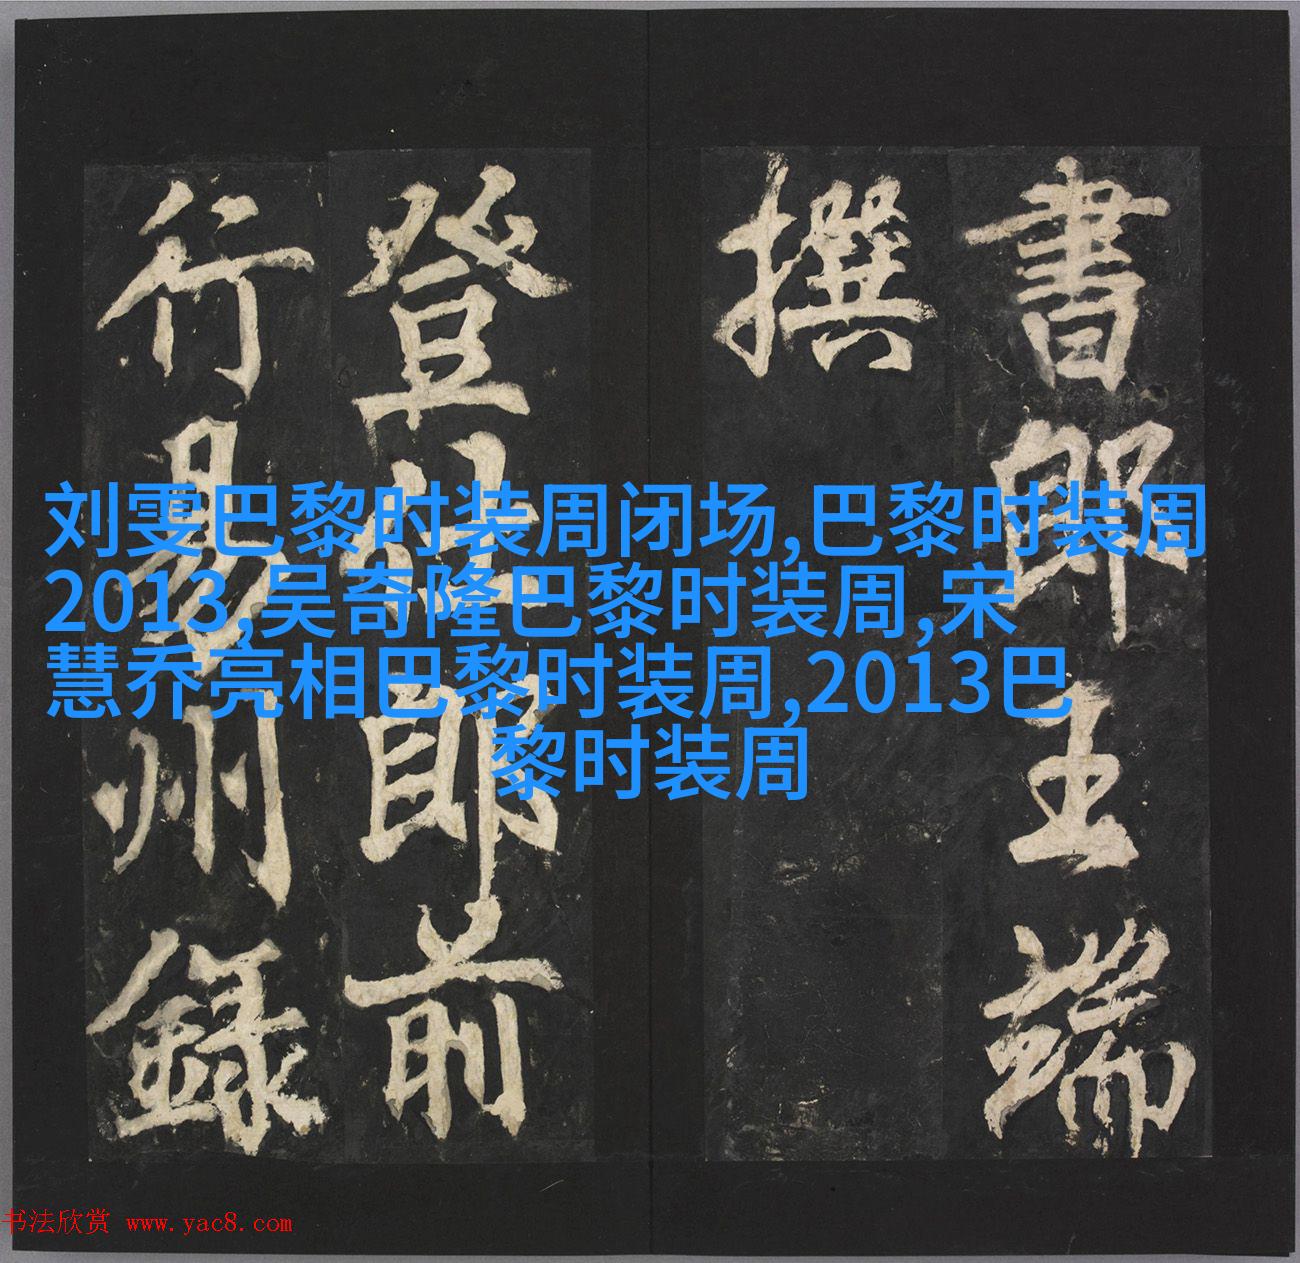 書郎王端
撰
登仕郎前
行易州錄
刘雯巴黎时装周闭场,巴黎时装周
2013,吴奇隆巴黎时装周,宋
慧乔亮相巴黎时装周,2013巴
黎时装周
书法欣赏 www.yac8.com